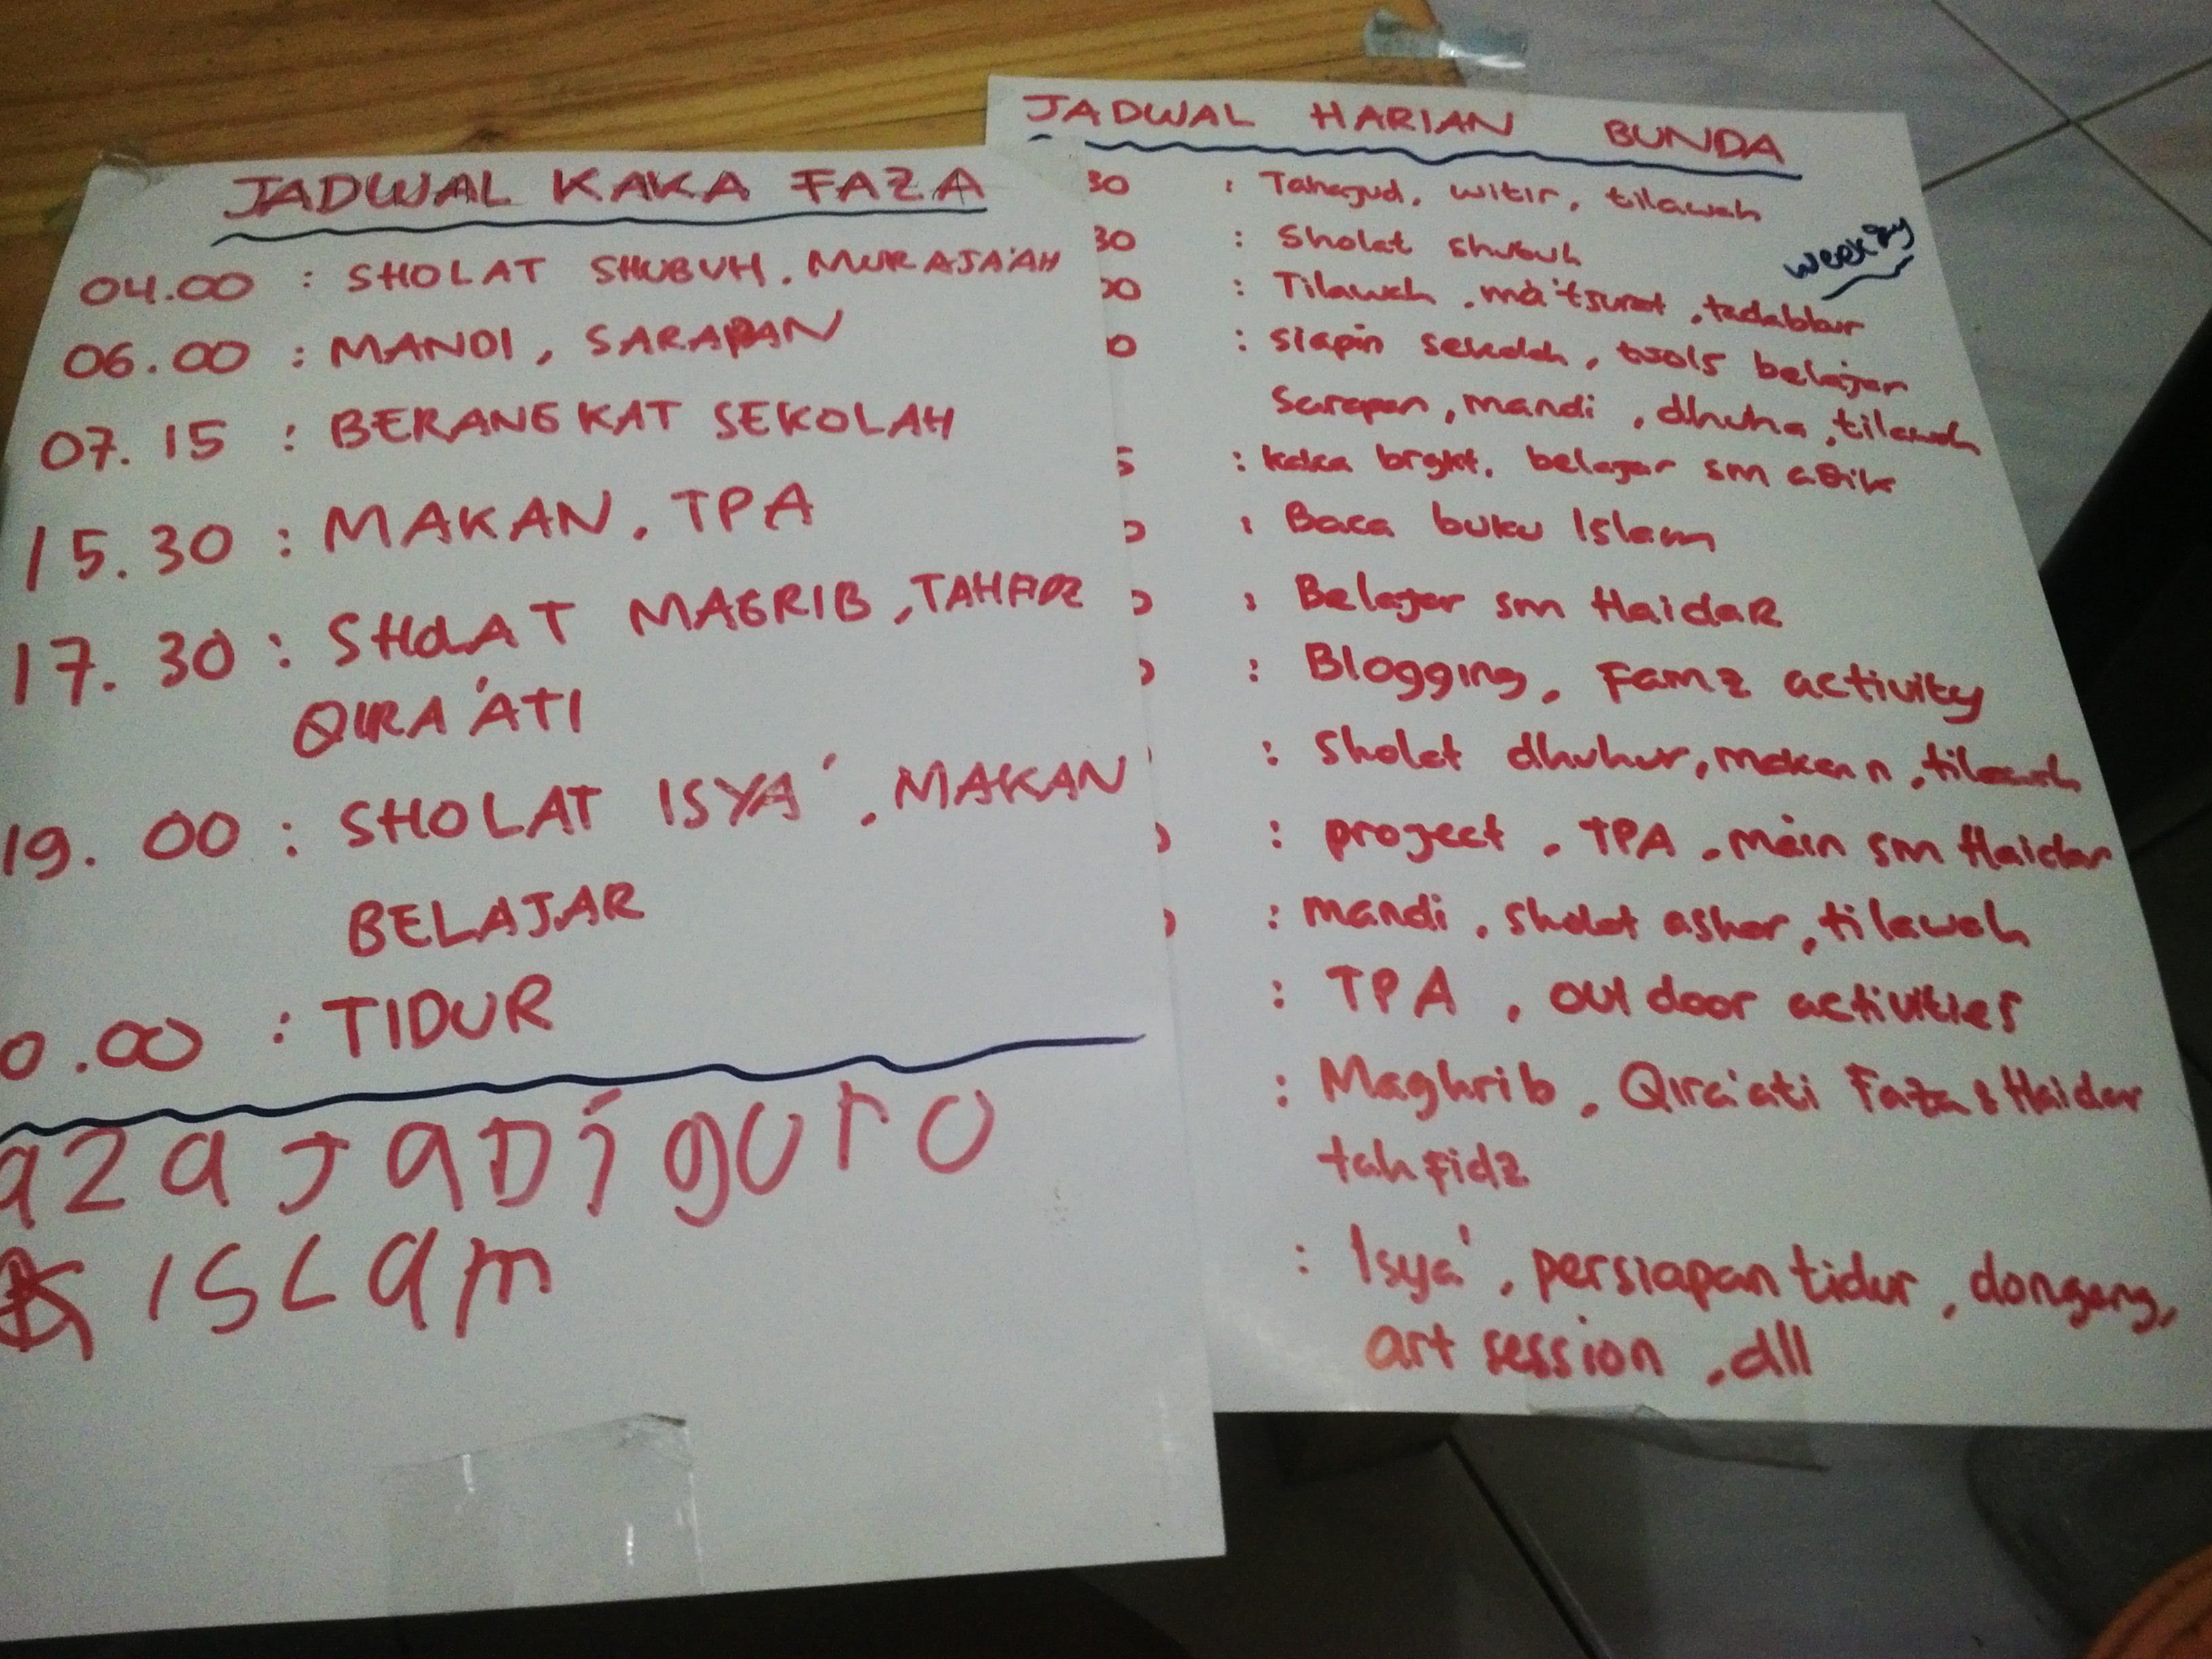 JADWAL KAKA FAZA
04.00 : SHOLAT SHUBUH, MURAJA'AH
06.00 : MANDI, SARAPAN
07.15 : BERANGKAT SEKOLAH
15.30 : MAKAN, TPA
17.30 : SHOLAT MAGRIB, TAHFIDZ
QIRA'ATI
19.00 : SHOLAT ISYA', MAKAN
BELAJAR
0.00 : TIDUR
aza JaDi guru
ISLam
JADWAL HARIAN BUNDA
30 : Tahajud, witir, tilawah
30 : Sholat shubuh
weekday
00 : Tilawah, ma'tsurat, tadabbur
0 : siapin sekolah, tools belajar
Sarapan, mandi, dhuha, tilawah
5 : kaka brgkt, belajar sm adik
: Baca buku Islam
: Belajar sm HaidaR
: Blogging, Famz activity
: Sholat dhuhur, makan, tilawah
: project, TPA, main sm Haidar
: mandi, sholat ashar, tilawah
: TPA, outdoor activities
: Maghrib, Qira'ati Faza & Haidar
tahfidz
: Isya', persiapan tidur, dongeng,
art session, dll